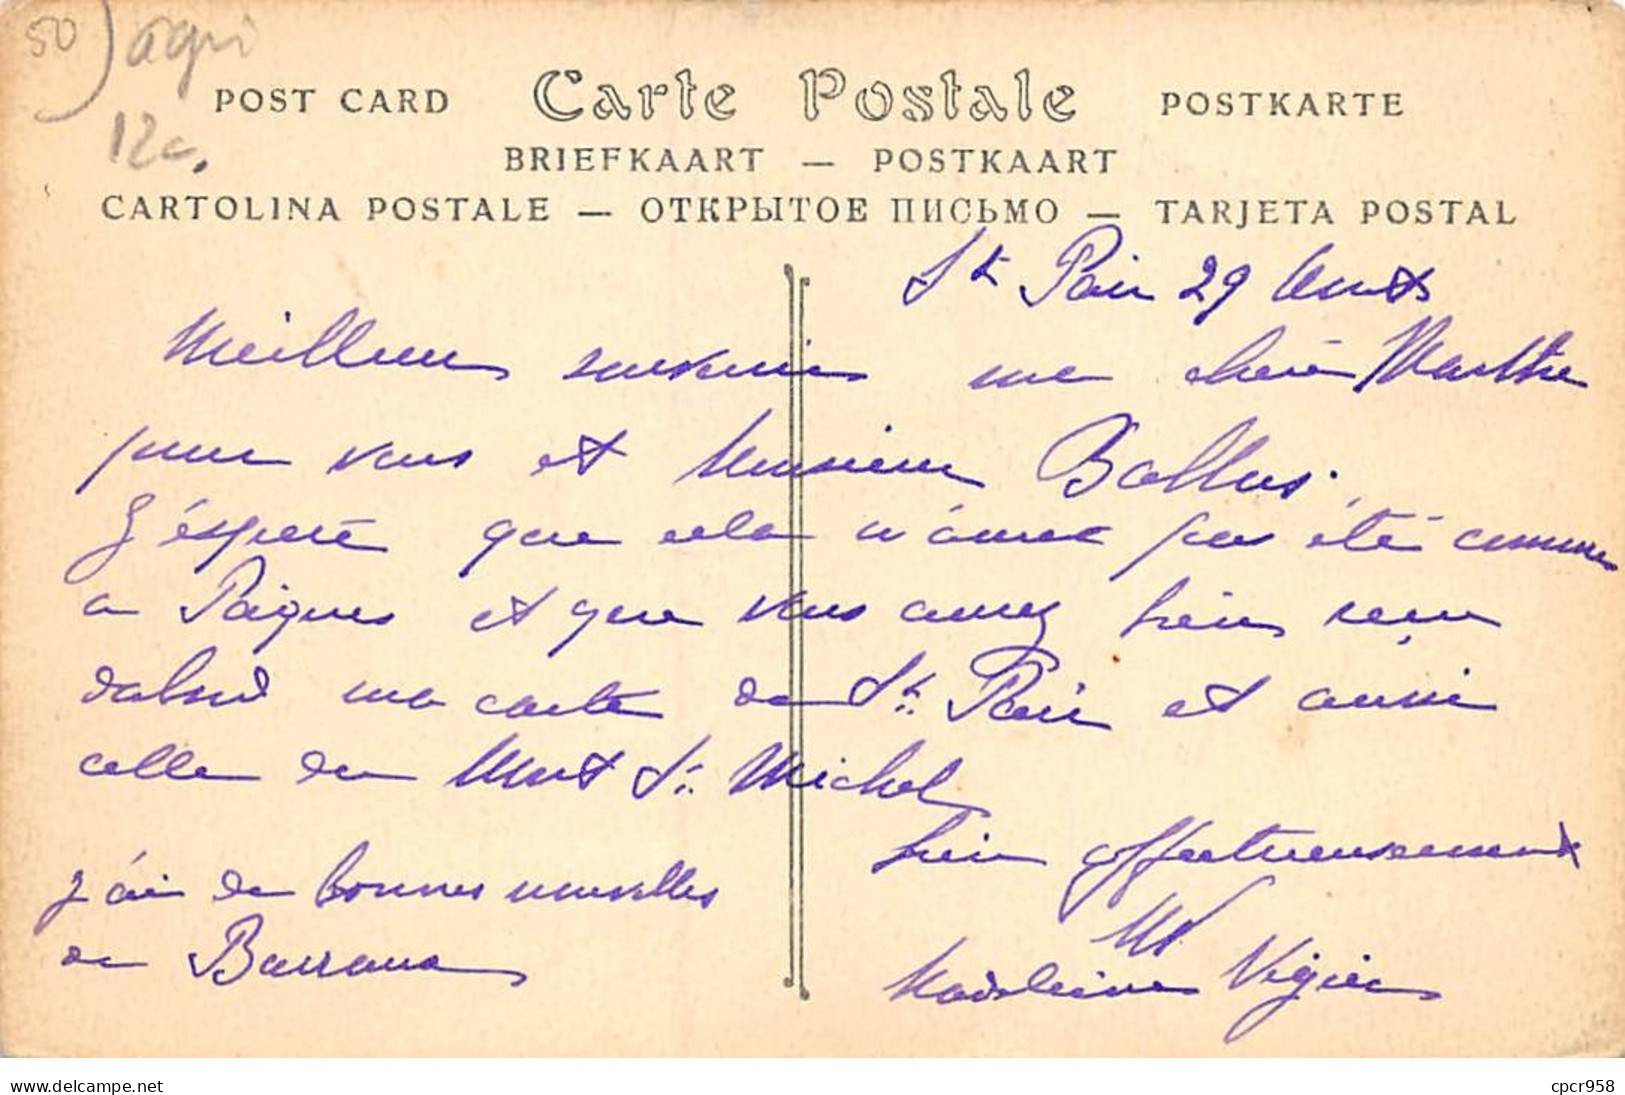 50 agri
12c.
POST CARD Carte Postale POSTKARTE
BRIEFKAART — POSTKAART
CARTOLINA POSTALE — ОТКРЫТОЕ ПИСЬМО — TARJETA POSTAL
St Pair 29 Aout
Meilleurs souvenirs ma chère Marthe
pour vous et Monsieur Ballus.
J'éspère que cela n'aura pas été comme
a Pâques et que vous aurez bien reçu
dabord ma carte de St. Pair et aussi
celle du Mont St. Michel
bien affectueusement
M
Madeleine Vigier
j'ai de bonnes nouvelles
de
www.delcampe.net
cpcr958